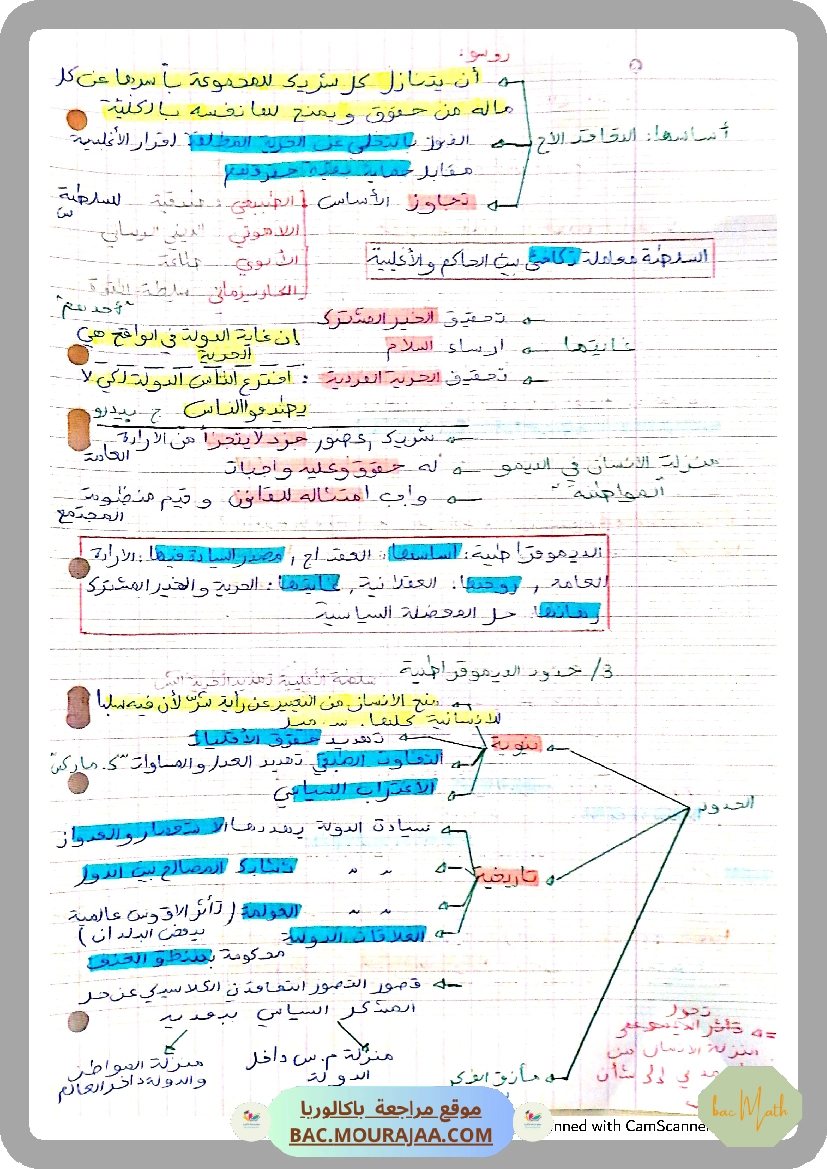 روسو:
أن يتنازل كل شريك للمجموعة بأسرها عن كل
ماله من حقوق و يمنح لها نفسه بالكلية
أساسها: التعاقد الإج
القبول بالتخلي عن الحرية المطلقة لقرار الأغلبية
مقابل حماية بقية حقوقهم
تجاوز الأساس الطبيعي: للسلطة
اللاهوتي
الأبوي: طاعة
الكاريزماتي سلطة القوة
السلطة معاملة تكافئ بين الحاكم والأغلبية
تحقيق الخير المشترك
غايتها
ارساء السلام
إن غاية الدولة في الواقع هي
الحرية
تحقيق الحرية الفردية: اخترع الناس الدولة لكي لا
يطيعوا الناس ج بيردو
شريك، عضو جزء لا يتجزأ من الارادة
العامة
منزلة الانسان في الديمو
"المواطنة"
له حقوق وعليه واجبات
واجب امتثاله للقانون وقيم منظومة
المجتمع
الديموقراطية: أساسها: التعاقد، مصدر السيادة فيها: الارادة
العامة، روحها: العقلانية، غايتها: الحرية والخير المشترك
رهانها: حل المعضلة السياسية
3/ حدود الديموقراطية
منع الانسان من التعبير عن رأيه شرّ لأن فيه سلبا
للانسانية كلها. س. ميل
تهديد حقوق الأقليات
بنيوية
التفاوت الطبقي تهديد العدل والمساواة "ك. ماركس"
الاغتراب السياسي
الحدود
سيادة الدولة يهددها الاستعمار والعدوان
تشابك المصالح بين الدول
تاريخية
العولمة (تأثر الأوديس عالمية
ببعض البلدان)
العلاقات الدولية
محكومة بمنطق العنف
قصور التصور التعاقدي الكلاسيكي عن حل
المشكل السياسي ببعديه
منزلة م.س داخل
الدولة
منزلة المواطن
والدولة داخل العالم
مأزق الفكر
منزلة الانسان من
موقع مراجعة باكالوريا
BAC.MOURAJAA.COM
bac Math
nned with CamScanner